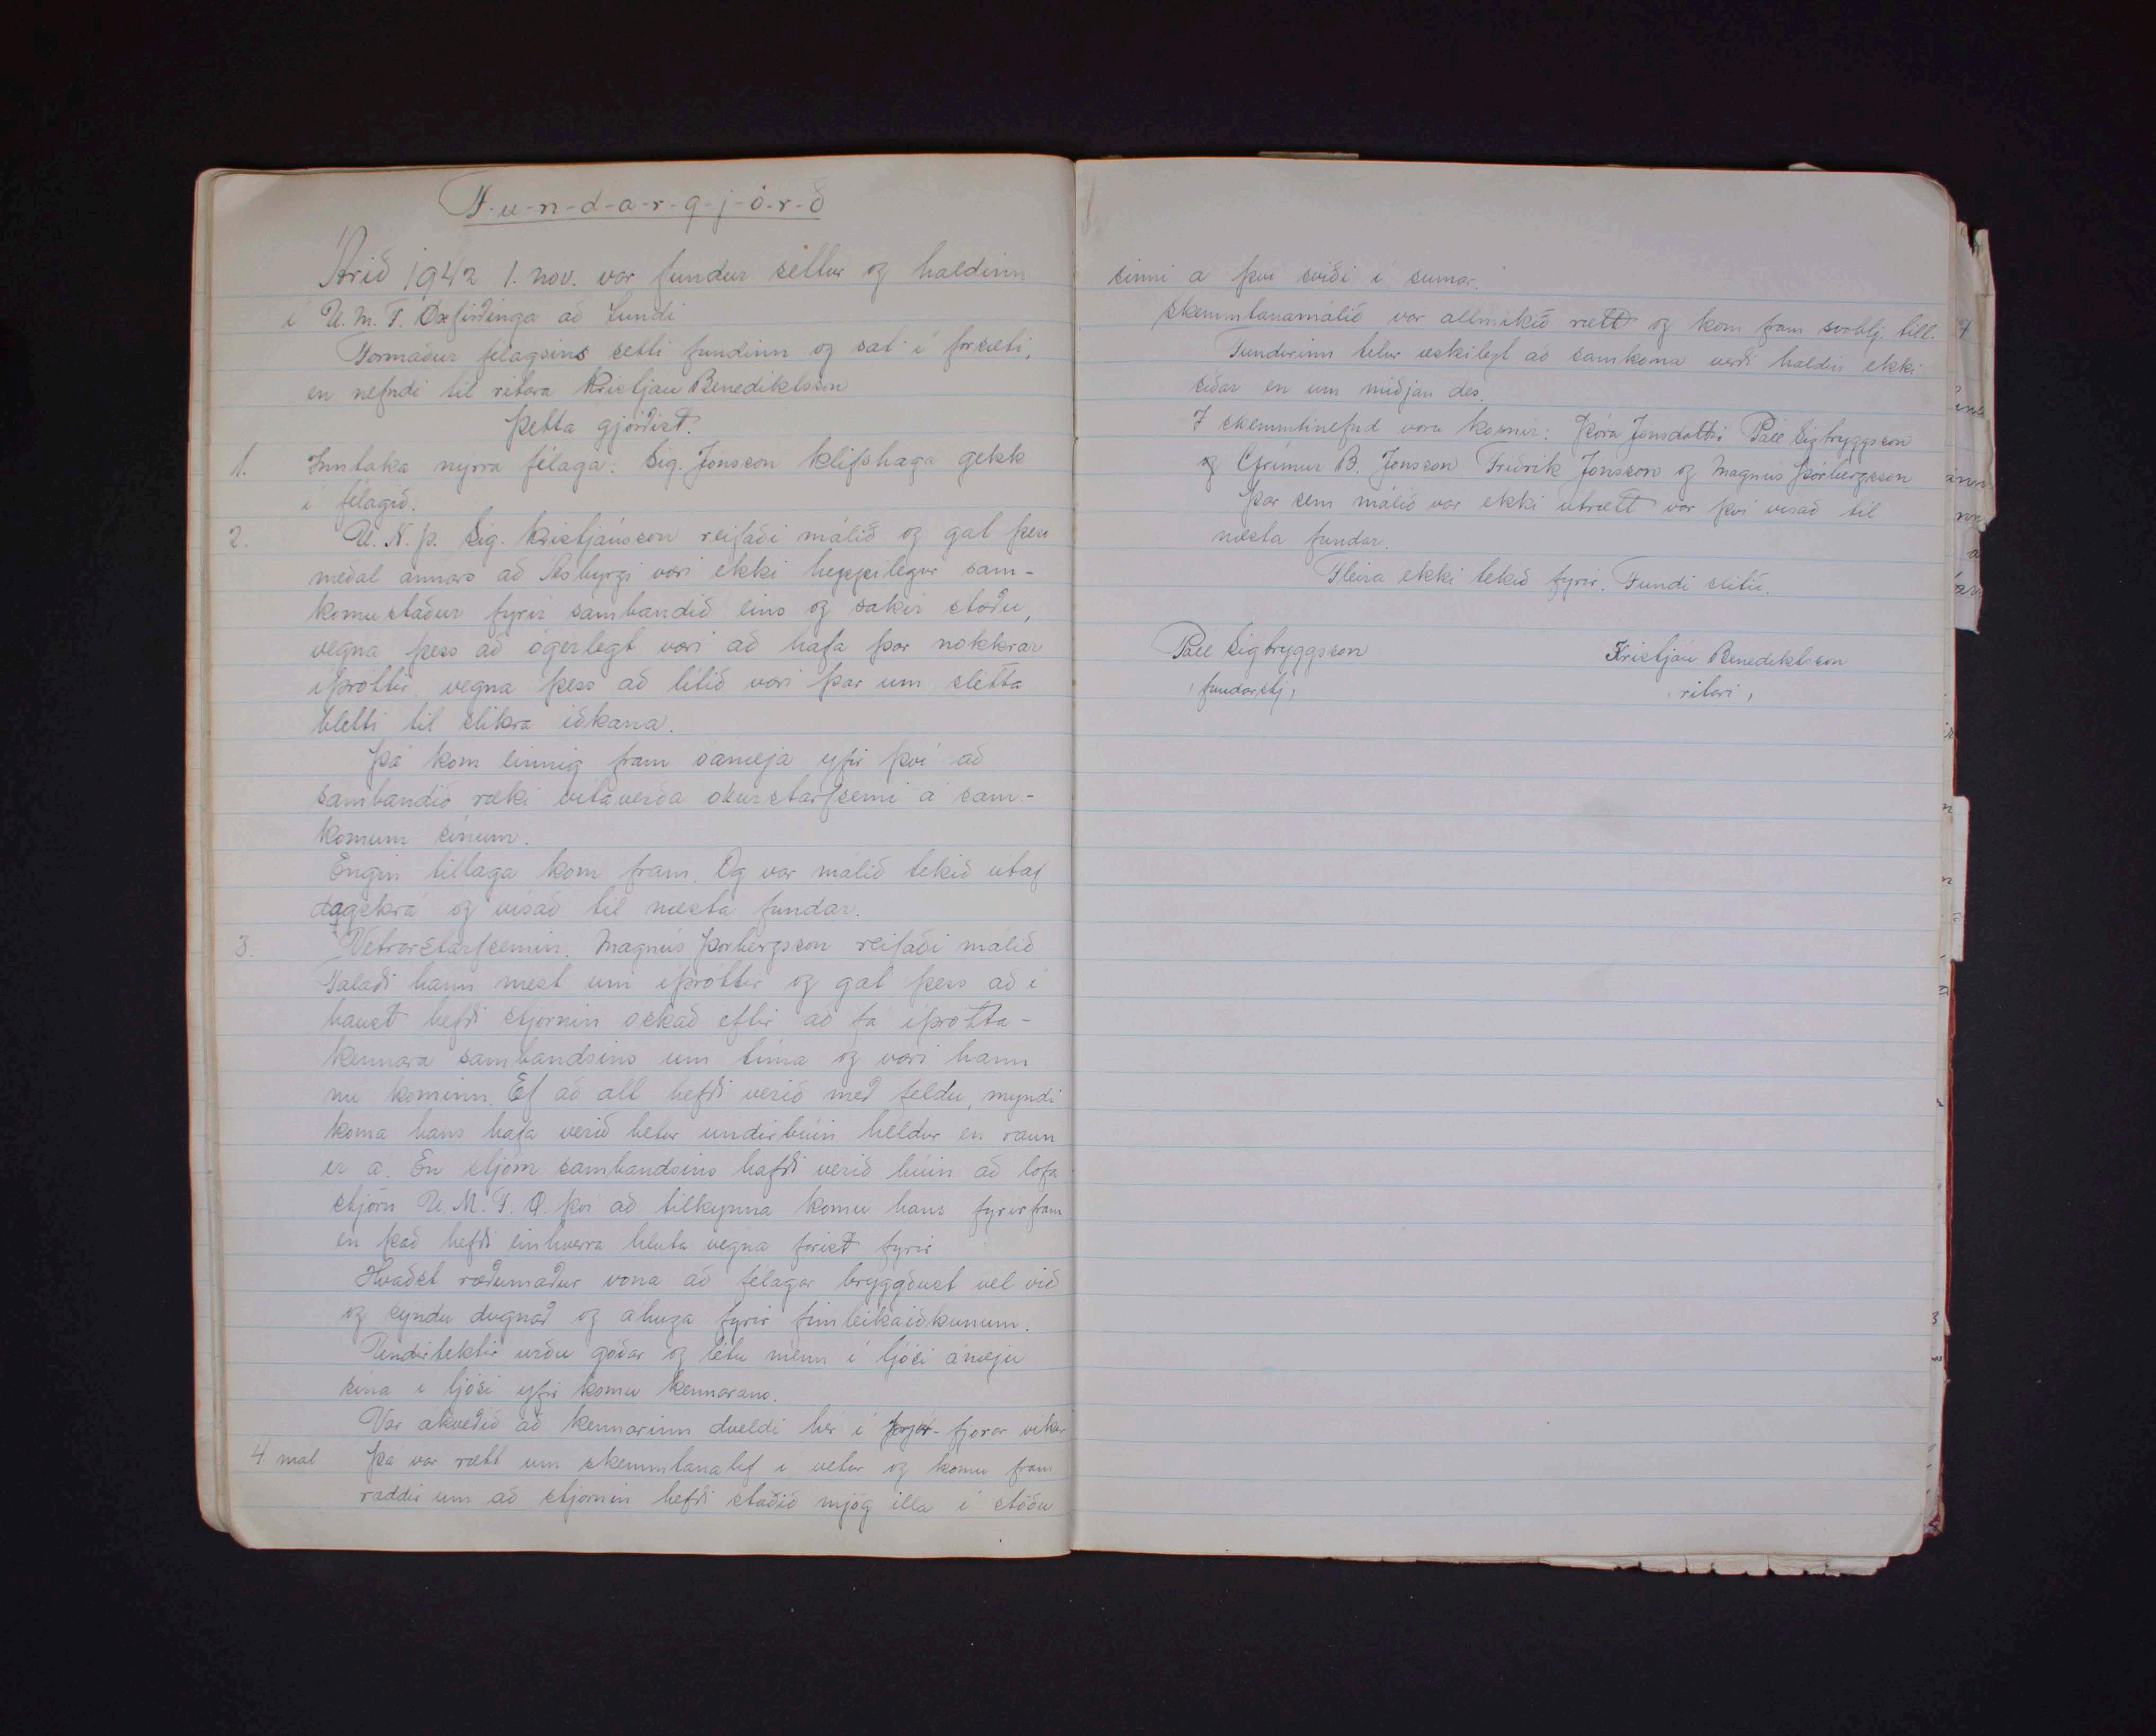 F-u-n-d-a-r-g-j-ö-r-ð
Árið 1942 1. nov. var fundur settur og haldinn
í U.M.F. Öxfirðinga að Lundi
Formaður félagsins setti fundinn og sat í forsæti,
en nefndi til ritara Kristján Benediktsson
Þetta gjörðist.
1. Inntaka nýrra félaga. Sig. Jónsson Klifshaga gekk
í félagið.
2. U.N.Þ. Sig. Kristjánsson reifaði málið og gat þess
meðal annars að Ásbyrgi væri ekki heppilegur sam-
komustaður fyrir sambandið eins og sakir stæðu,
vegna þess að ógerlegt væri að hafa þar nokkrar
íþróttir vegna þess að lítið væri þar um slétta
bletti til slíkra iðkana.
Þá kom einnig fram óánægja yfir því að
sambandið ræki vítaverða okurstarfsemi á sam-
komum sínum.
Engin tillaga kom fram. Og var málið tekið útaf
dagskrá og vísað til næsta fundar.
3. Vetrarstarfsemin. Magnús Þorbergsson reifaði málið
Talaði hann mest um íþróttir og gat þess að í
haust hefði stjórnin óskað eftir að fá íþrótta-
kennara sambandsins um tíma og væri hann
nú kominn. Ef að allt hefði verið með feldu, myndi
koma hans hafa verið betur undirbúin heldur en raun
er á. En stjórn sambandsins hafði verið búin að lofa
stjórn U.M.F.Ö. því að tilkynna komu hans fyrirfram
en það hefði einhverra hluta vegna farist fyrir
Kvaðst ræðumaður vona að félagar brygðust vel við
og syndu dugnað og áhuga fyrir fimleikaiðkunum.
Undirtektir urðu góðar og létu menn í ljósi ánægju
sína í ljósi yfir komu kennarans.
Var ákveðið að kennarinn dveldi hér í þrjár-fjórar vikur
4. mál Þá var rætt um skemmtanalíf í vetur og komu fram
raddir um að stjórnin hefði staðið mjög illa í stöðu
sinni á því sviði í sumar.
Skemmtanamálið var allmikið rætt og kom fram svohlj. till.
Fundurinn telur æskilegt að samkoma verði haldin ekki
síðar en um miðjan des.
Í skemmtinefnd voru kosnir: Þóra Jónsdóttir Páll Sigtryggsson
og Grímur B. Jónsson Friðrik Jónsson og Magnús Þórbergsson
Þar sem málið var ekki útrætt var því vísað til
næsta fundar.
Fleira ekki tekið fyrir. Fundi slitið.
Páll Sigtryggsson
, fundarstj,
Kristján Benediktsson
, ritari,